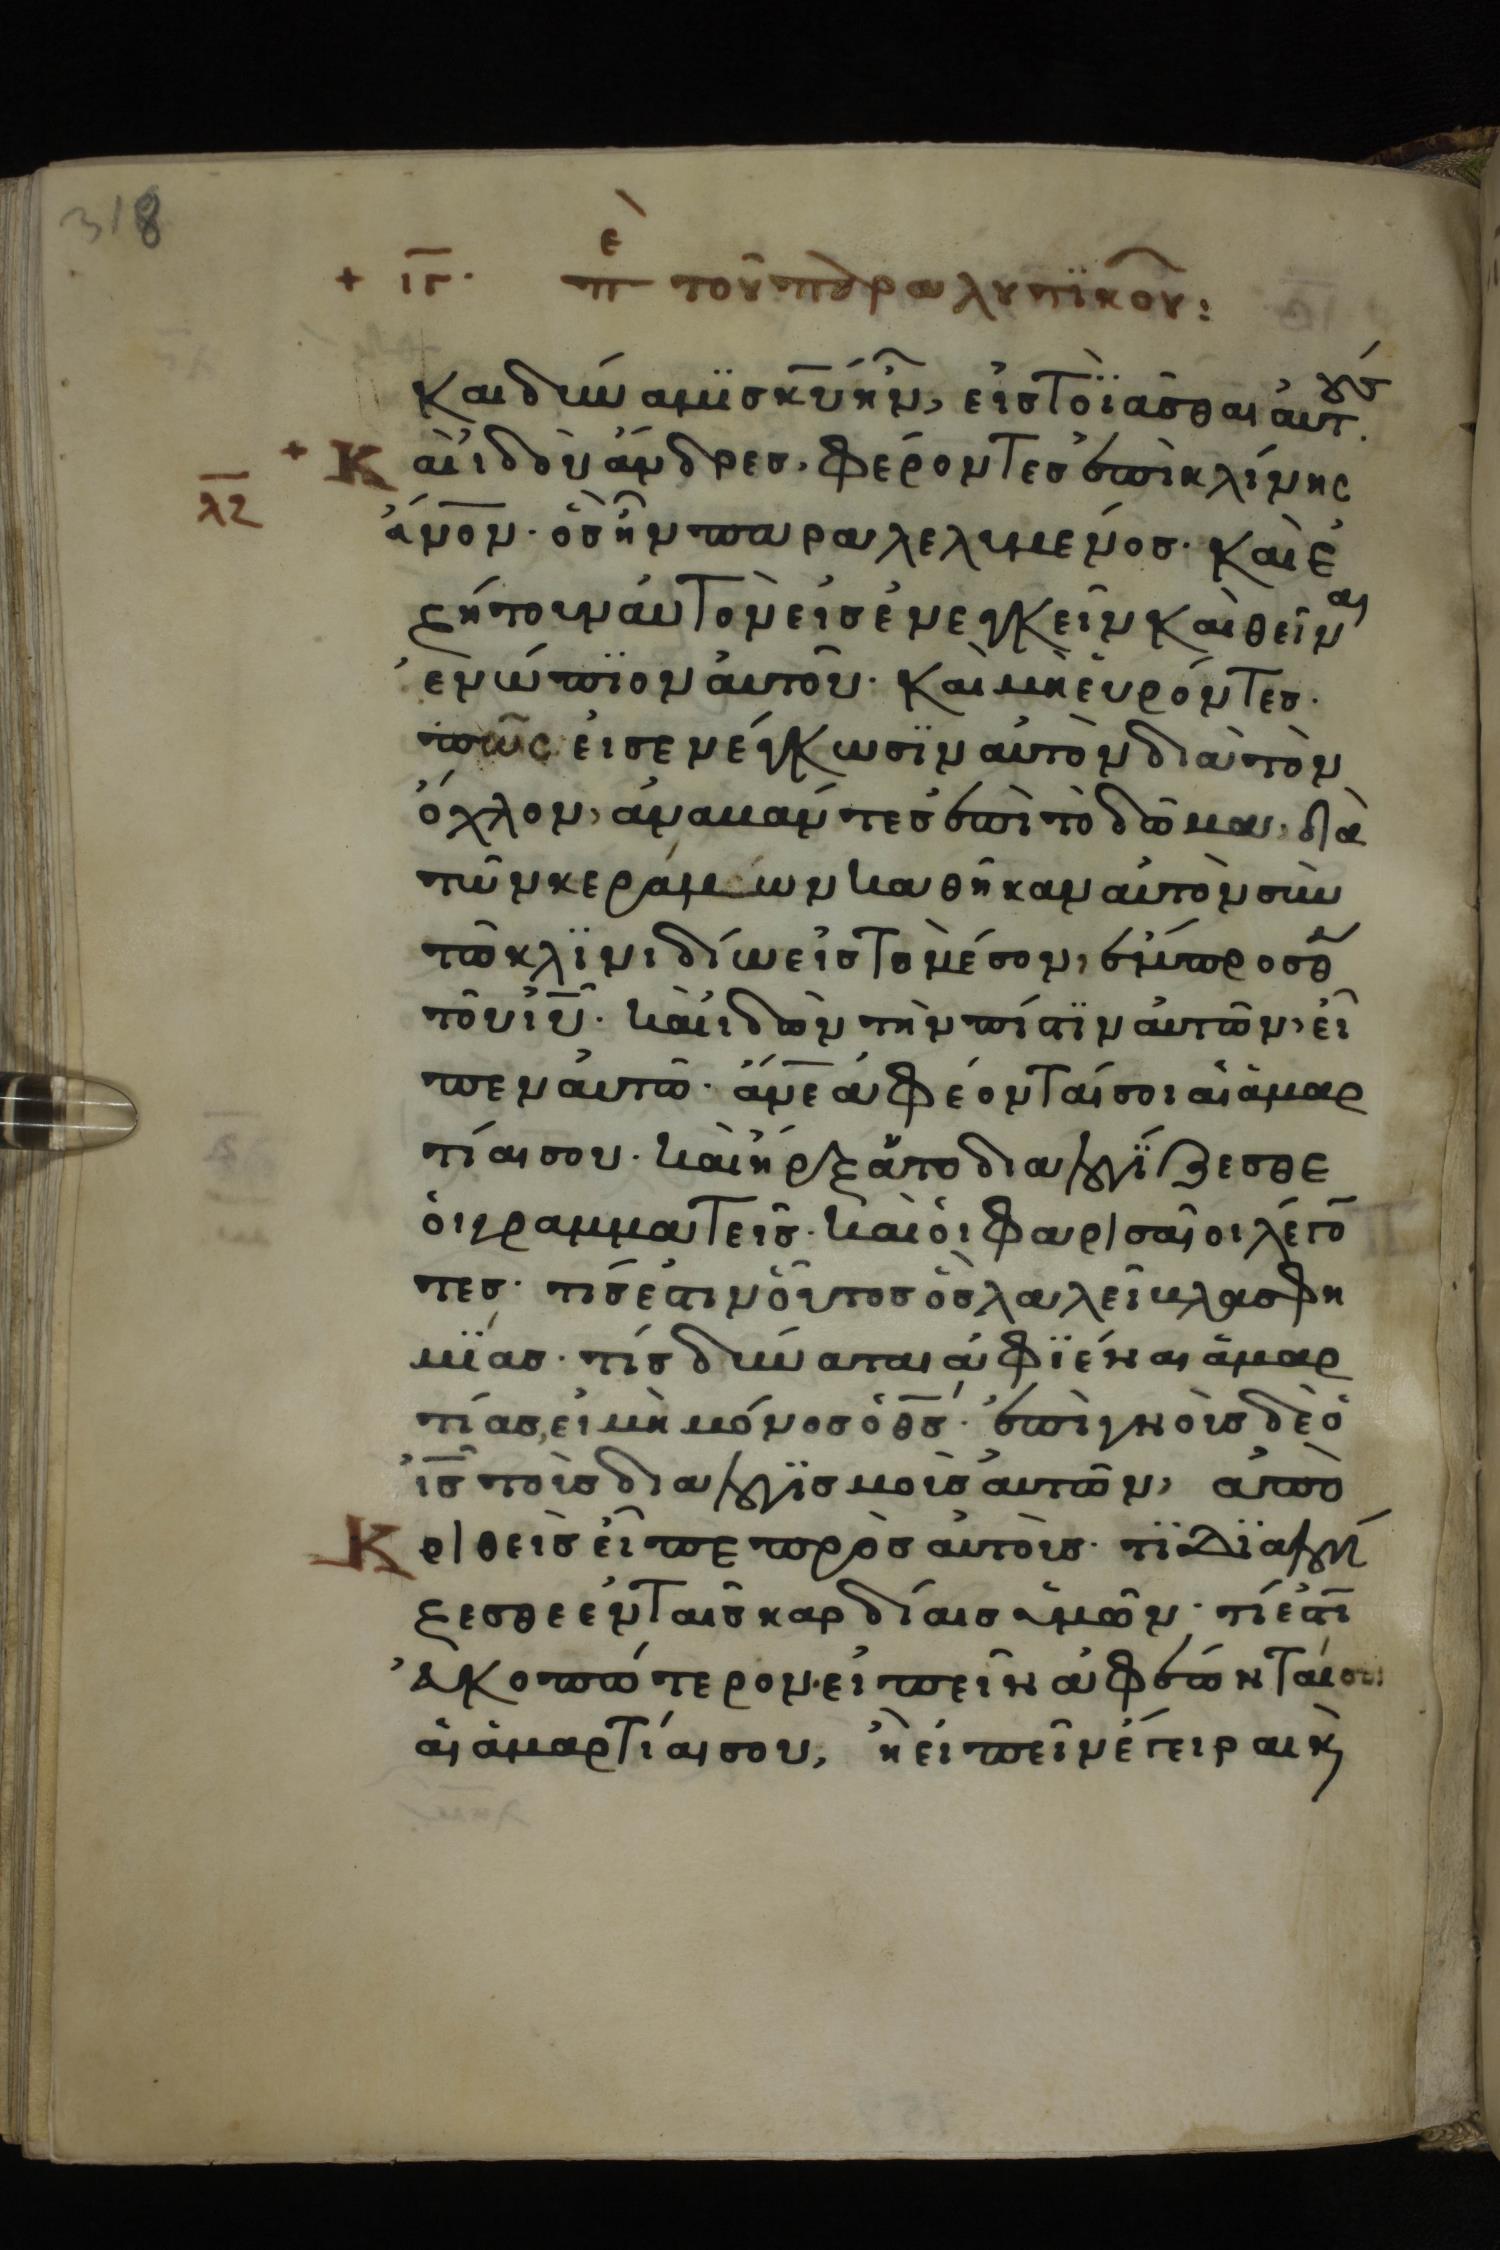 318
+ ιγ· πε τοῦ παραλυτϊκοῦ:
και δύναμϊσ κ̅υ̅ ἦν, εἰς τὸ ϊᾶσθαι αὐτούσ.
+ Και ἰδοὺ ἄνδρεσ, φέροντεσ ἐπὶ κλίνης
λ̅ς̅
ἄ̅ν̅ο̅ν̅· ὃς ἦν παραλελυμένοσ· και ἐ
ζήτουν αὐτὸν εἰσενεγκεῖν και θεῖναι
ἐνώπϊον αὐτοῦ· και μὴ εὑρόντεσ·
πῶς εἰσενέγκωσϊν αὐτὸν διὰ τὸν
ὄχλον, ἀναβάντεσ ἐπὶ τὸ δῶμα, διὰ
τῶν κεράμων καθῆκαν αὐτὸν σὺν
τῶ κλϊνιδίω εἰς τὸ μέσον, ἔμπροσθ
τοῦ ἰ̅υ̅· και ἰδὼν τὴν πίστϊν αὐτῶν, εἶ
πεν αὐτῶ· ἄ̅ν̅ε̅ ἀφέονταί σοι αἱ ἁμαρ
τίαι σου· και ἤρξατο διαλογϊζεσθε
οἱ γραμματεῖς· και οἱ φαρισαῖοι λέγο
τεσ· τίς ἐστιν οὗτοσ ὃς λαλεῖ βλασφη
μϊασ· τίς δύναται ἀφϊέναι ἁμαρ
τίασ, εἰ μὴ μόνοσ ὁ θ̅ς̅· ἐπιγνοὺς δὲ ὁ
ἰ̅ς̅ τοὺς διαλογϊσμοὺς αὐτῶν, ἀπο
Κριθεὶς εἶπε πρὸς αὐτούσ· τϊ δϊαλογί
ζεσθε ἐν ταῖς καρδίαισ ὑμῶν· τί ἐστϊ
ἐκοπώτερον· εἰπεῖν ἀφέωνταί σοι
αἱ ἁμαρτίαι σου, ἢ εἰπεῖν ἔγειραι κ